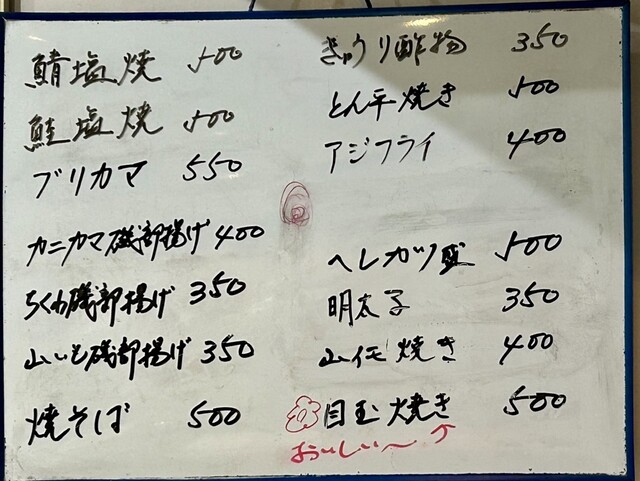 鯖塩焼 500
鮭塩焼 500
ブリカマ 550
カニカマ磯部揚げ 400
ちくわ磯部揚げ 350
山いも磯部揚げ 350
焼そば 500
きゅうり酢物 350
とん平焼き 500
アジフライ 400
ヘレカツ盛 500
明太子 350
山芋焼き 400
目玉焼き 500
おいしい〜↑